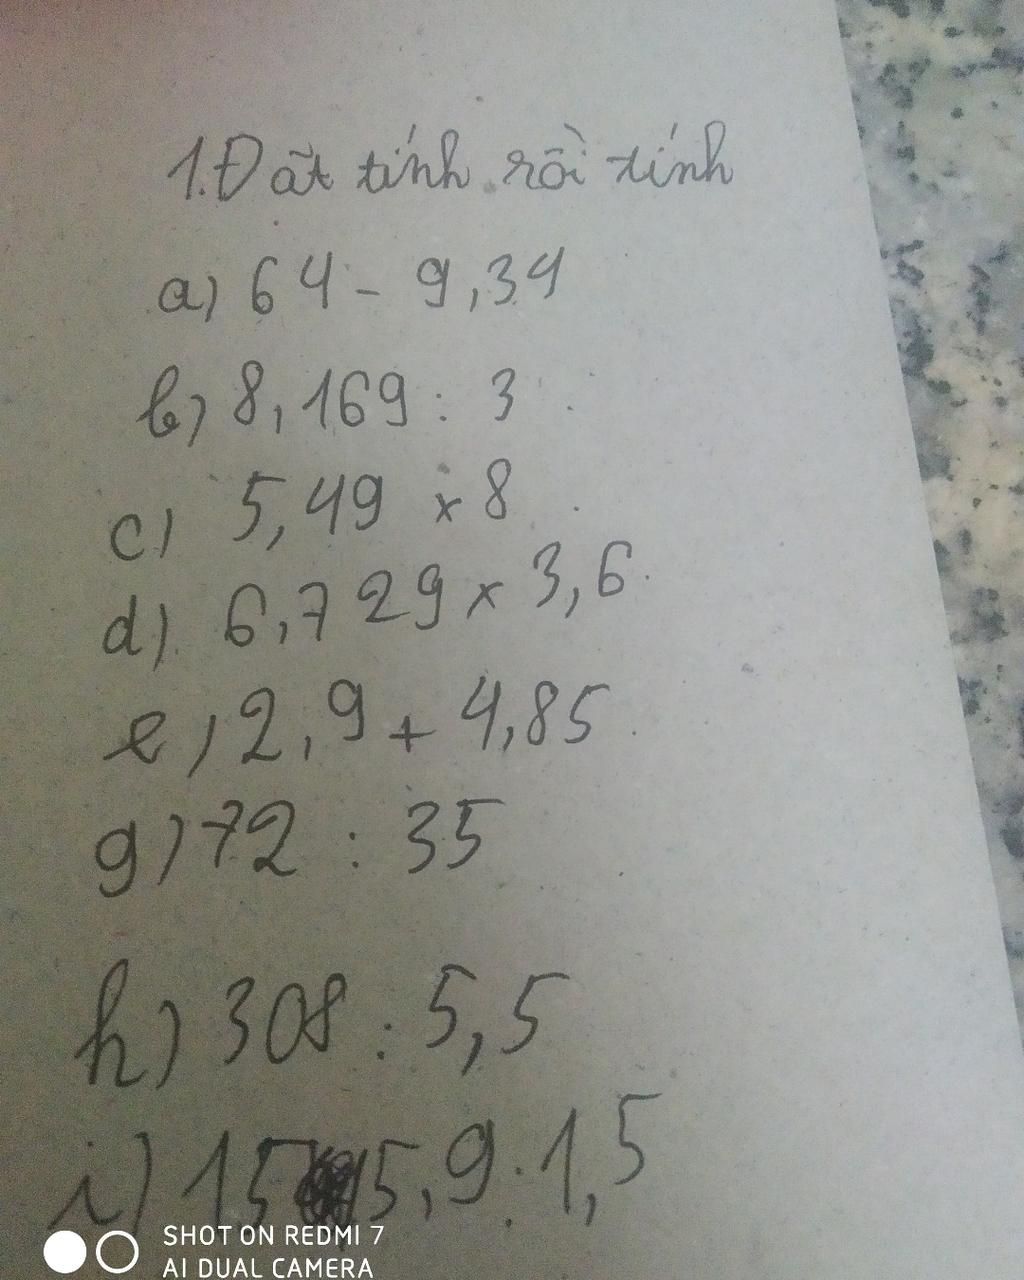 1. Đặt tính rồi tính
a) 64 - 9,34
b) 8,169 : 3
c) 5,49 x 8
d) 6,729 x 3,6
e) 2,9 + 4,85
g) 72 : 35
h) 308 : 5,5
i) 15 5,9 : 1,5
SHOT ON REDMI 7
AI DUAL CAMERA